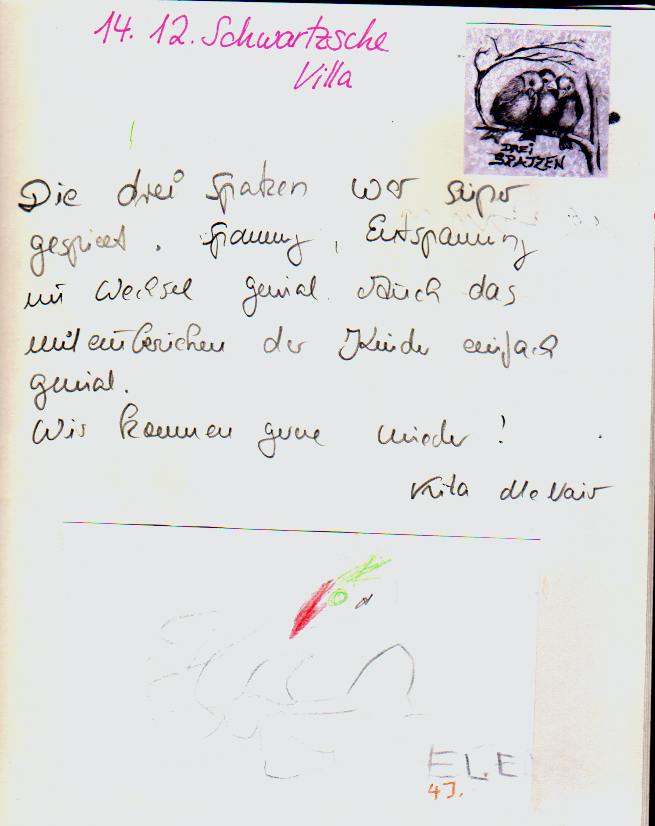 14. 12. Schwartzsche
Villa
DREI
SPATZEN
Die drei Spatzen war super
gespielt. Spannung, Entspannung
im Wechsel genial. Auch das
miteinbeziehen der Kinder einfach
genial.
Wir kommen gerne wieder!
Kita McNair
ELE
4J.